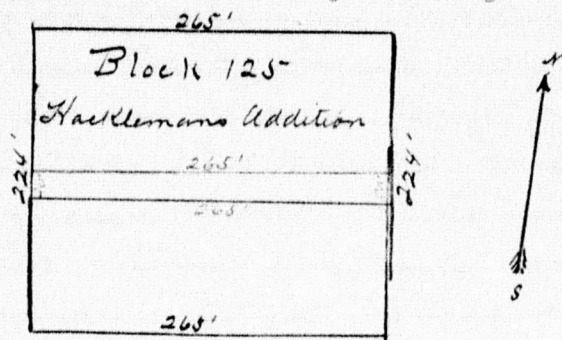 265'
Block 125
Hacklemans Addition
265'
224'
224'
265'
265'
N
S